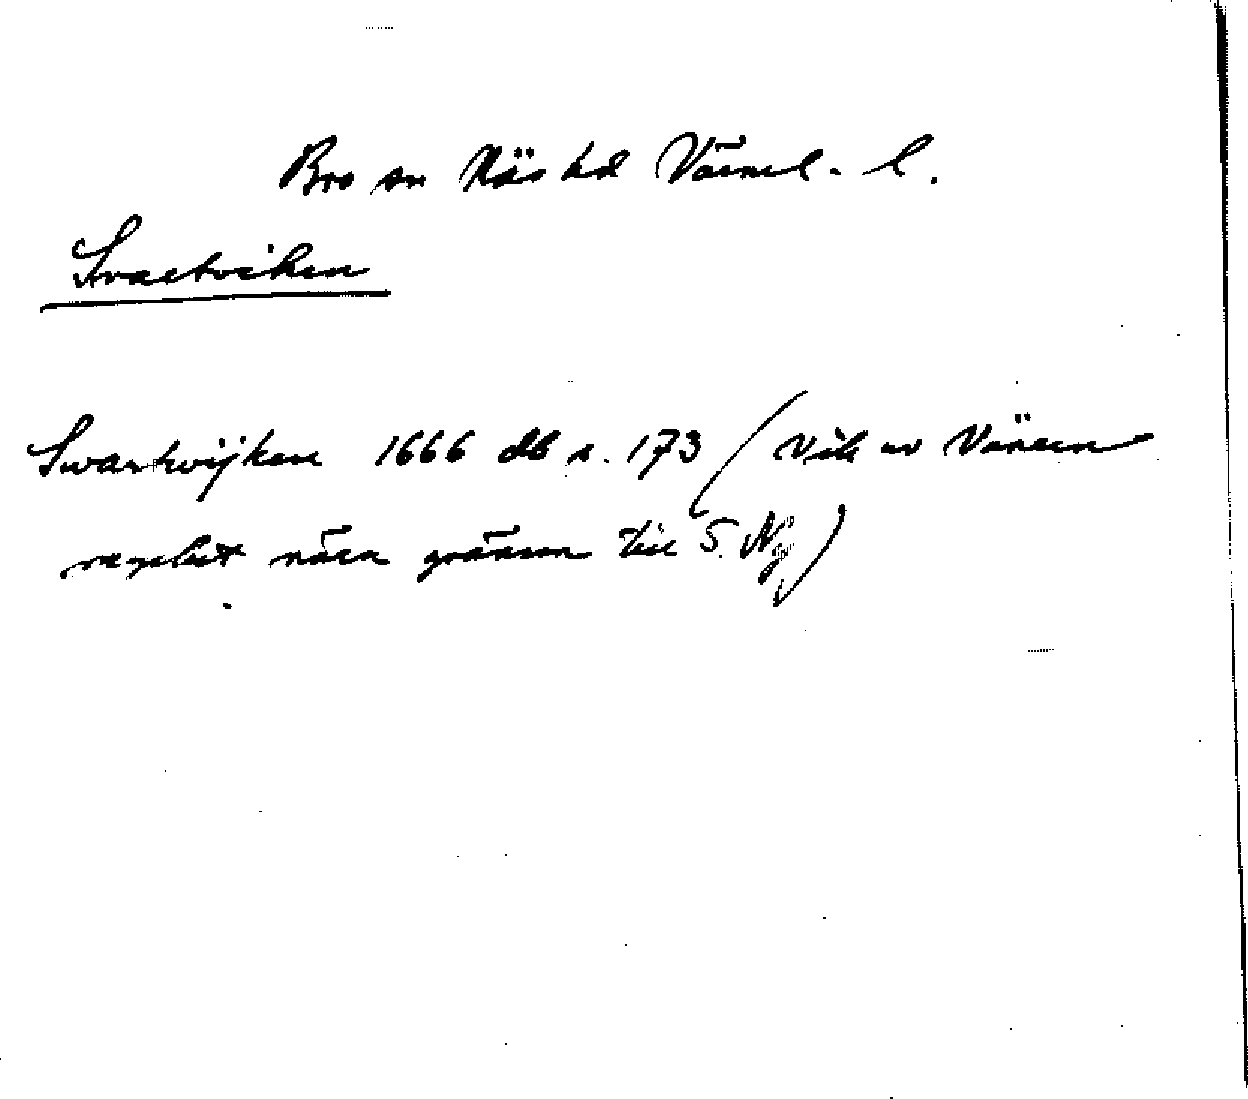 Bro sn Näs hd Värml. l.
Svartviken
Swartwijken 1666 db s. 173 (Vik av Vänern
nära gränsen till S. Ng)